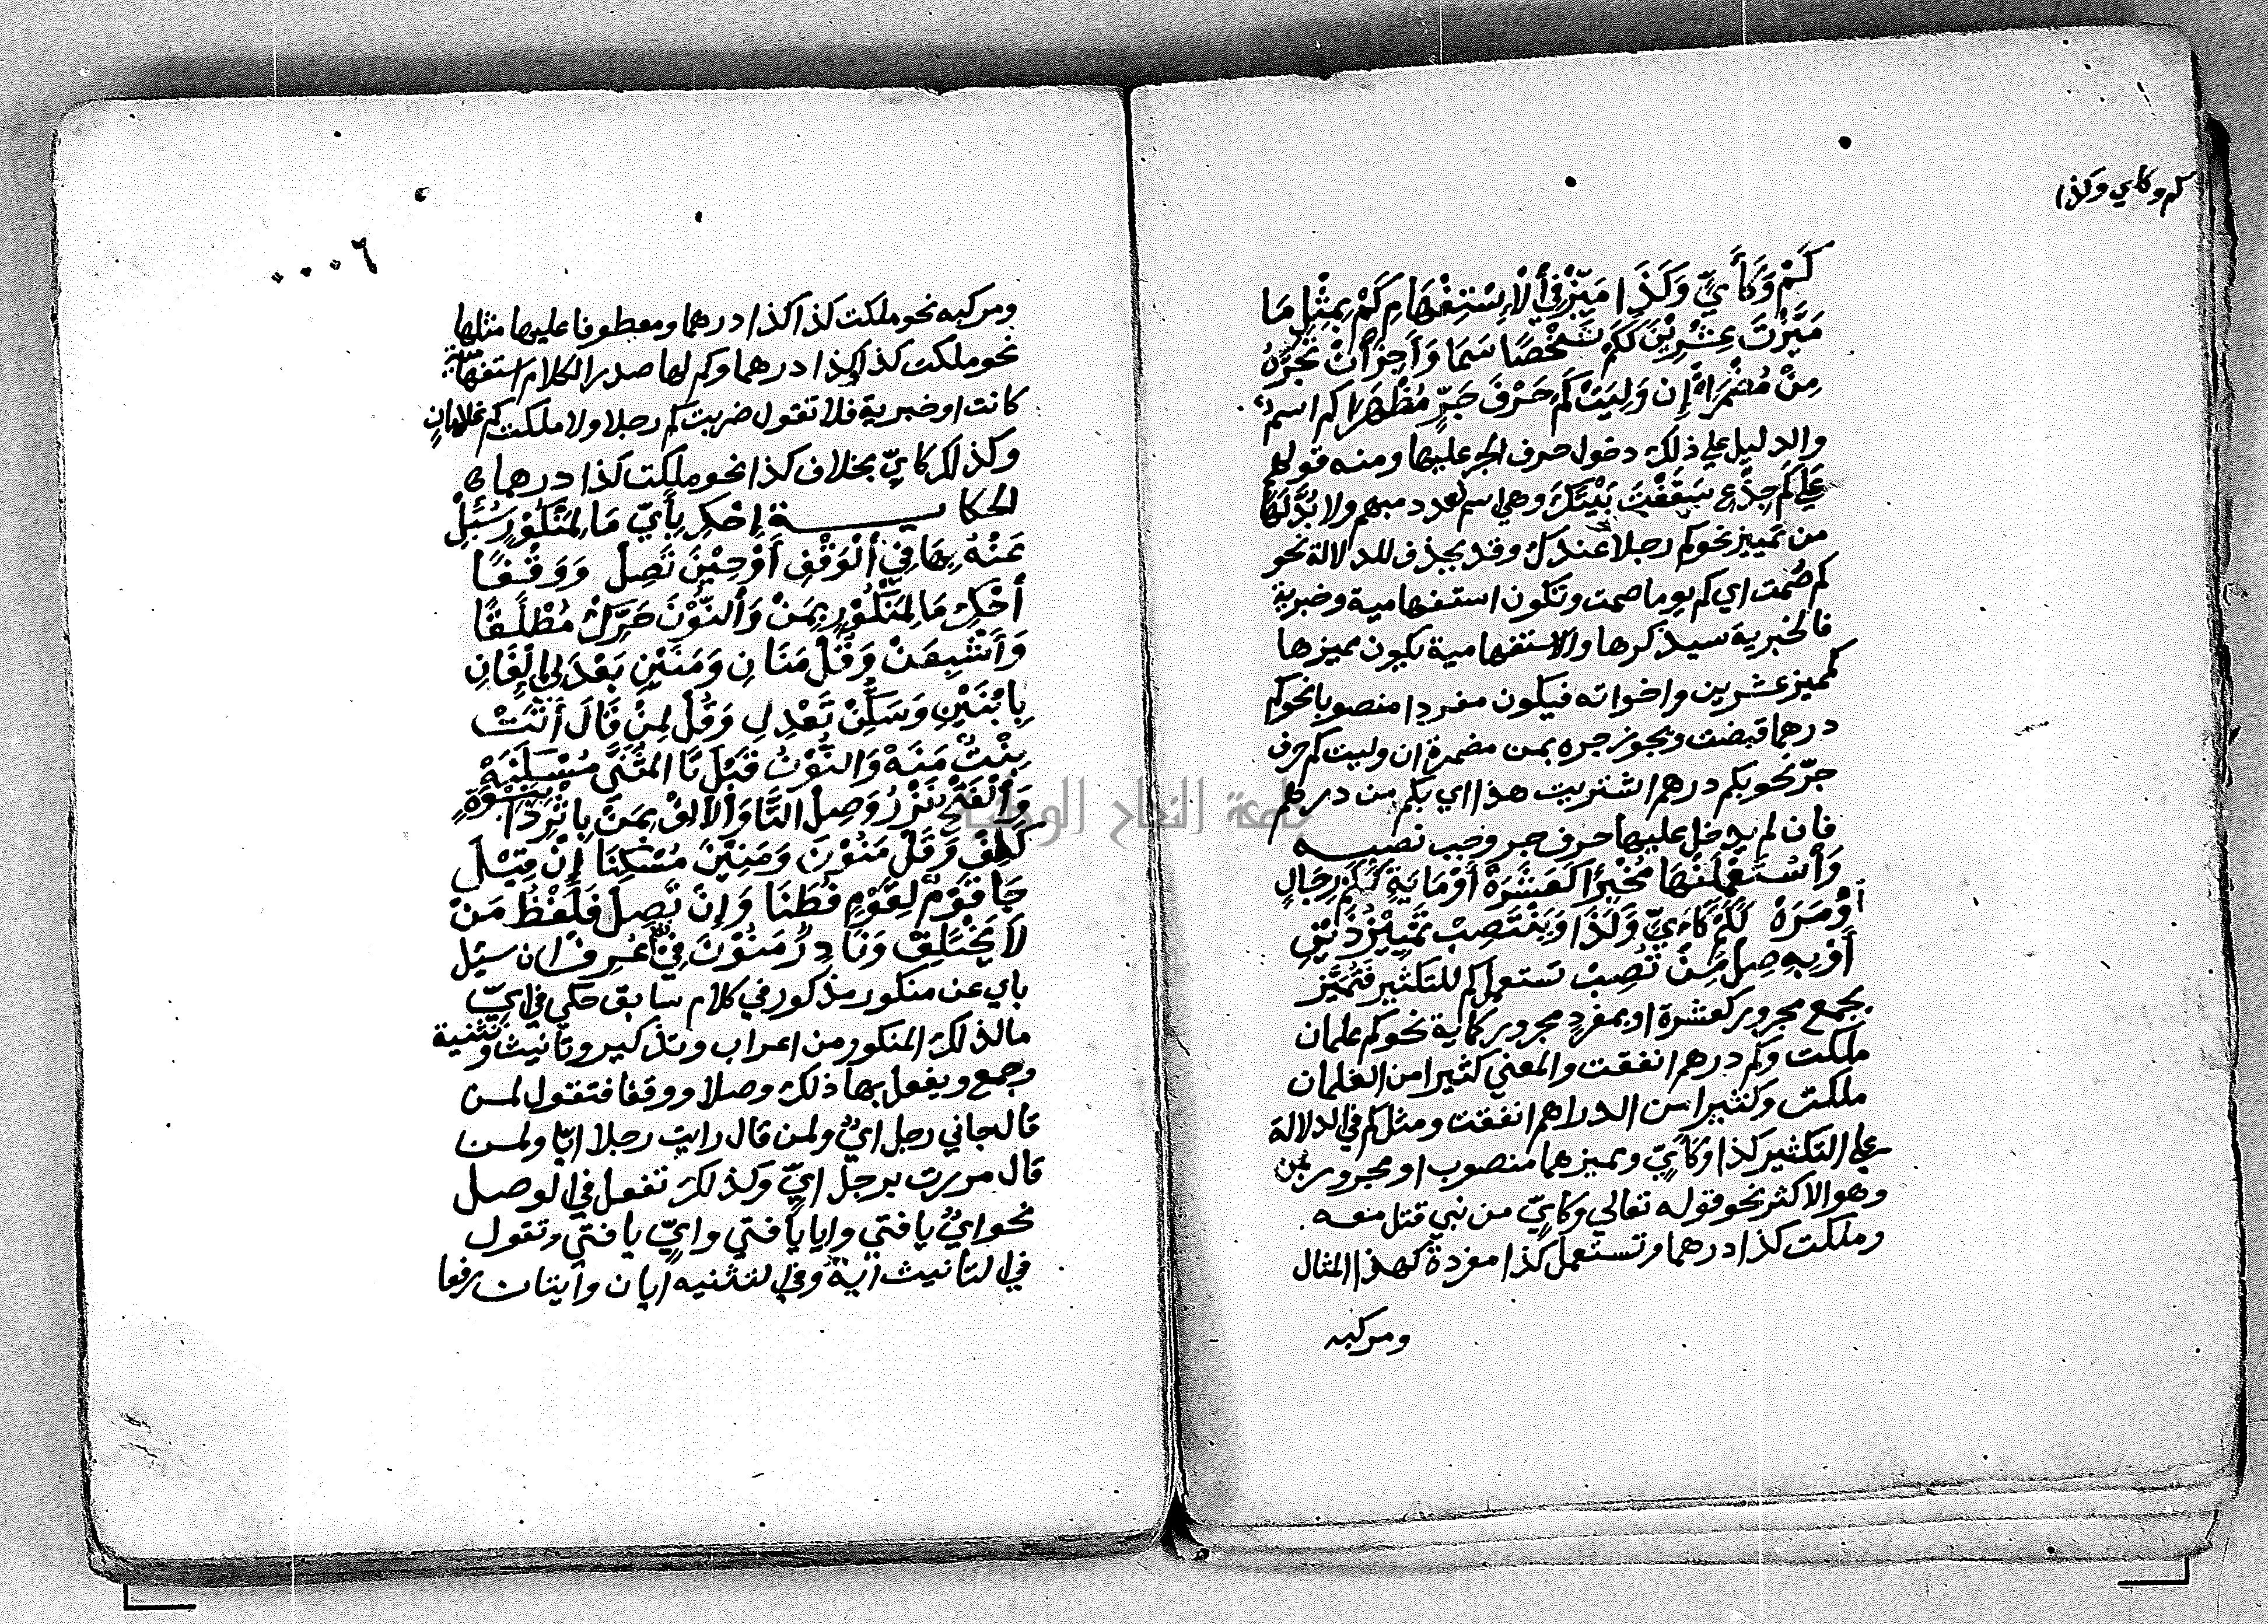 كم وكاي وكذا
كَمْ وَكَأَيٍّ وَكَذَا مَيِّزْ فِي ألْاِسْتِفْهَامِ كَمْ بِمِثْلِ مَا
مَيَّزْتَ عِشْرِيْنَ كَكَمْ شَخْصًا سَمَا وَأَجِزْ أَنْ تَجُرَّهُ
مِنْ مُضْمَرَاً إِن وَلِيَتْ كَمْ حَرْفَ جَرٍّ مُظْهَرَا كم اسم
والدليل علي ذلك دخول حرف الجر عليها ومنه قولهم
عَلَي كَمْ جِذْعٍ سَقَفْتَ بَيْتَكَ وهي اسم لعدد مبهم ولا بُدَّ لَهَا
من تمييز نحو كم رجلا عندك وقد يحذف للدلالة نحو
كم صُمت اي كم يوما صمت وتكون استفهامية وخبرية
فالخبرية سيذكرها والاستفهامية يكون مميزها
كمميز عشرين واخواته فيكون مفردا منصوبا نحو كم
درهما قبضت ويجوز جره بمن مضمرة ان وليت كم حرف
جرّ نحو بكم درهم اشتريت هذا اي بكم من درهم
فان لم يدخل عليها حرف جر وجب نصبه
وَأسْتَعْمِلَنْهَا مُخْبِرًا كَعَشَرَهْ أَوْ مَايَةٍ كَكَمْ رِجَالٍ
أوْ مَرَهْ كَكَمْ كَأَيٍّ وَكَذَا وَيَنْتَصِبْ تَمْيِيْزُ ذَيْنِ
أَوْ بِهِ صِلْ مِنْ تُصِبْ تستعمل كم للتكثير فتُميَّز
بجمع مجرور كعشرة او بمفردٍ مجرور كماية نحو كم غلمان
ملكت وكم درهم انفقت والمعني كثيرا من الغلمان
ملكت وكثيرا من الدراهم انفقت ومثل كم في الدلالة
علي التكثير كذا وكأيّ ومميزهما منصوب او مجرور بمن
وهو الاكثر نحو قوله تعالي وكايّ من نبي قتل معه
وملكت كذا درهما وتستعمل كذا مفردة كهذا المثال
ومركبه
٦٠٠٠
ومركبه نحو ملكت كذا كذا درهما ومعطوفا عليها مثلها
نحو ملكت كذا وكذا درهما وكم لها صدر الكلام استفهامية
كانت او خبرية فلا تقول ضربت كم رجلا ولا ملكت كم غلمانٍ
وكذلك كايّ بخلاف كذا نحو ملكت كذا درهما
الحكايـــــة إِحْكِ بِأَيٍّ مَا لِمَنْكُوْرٍ سُئِلْ
عَنْهُ بِهَا فِي ألْوَقْفِ أَوْ حِيْنَ تَصِلْ وَوَقْفًا
أحْكِ مَا لِمَنْكُوْرٍ بِمَنْ وَألنُّوْنَ حَرِّكْ مُطْلَقًا
وَأَشْبِعَنْ وَقُلْ مَنَانِ وَمَنَيْنِ بَعْدَ لِي إِلْفَانِ
بِابْنَيْنِ وَسَكِّنْ تَعْدِلِ وَقُلْ لِمَنْ قَالَ أَتَتْ
بِنْتٌ مَنَهْ وَالنُّوْنُ قَبْلَ تَا المُثَنَّى مُسْكَنَهْ
وَألْفَتْحُ نَزْرٌ وَصِلِ التَّا وَألْأَلِفْ بِمَنْ بِإِثْرِ ذَا بِنِسْوَةٍ
كَلِفْ وَقُلْ مَنُوْنَ وَمَنِيْنَ مُسْكِنَا إِنْ قِيْلَ
جَا قَوْمٌ لِقَوْمٍ فُطَنَا وَإِنْ تَصِلْ فَلَفْظُ مَنْ
لَا يَخْتَلِفْ وَنَادِرٌ مَنُوْنَ فِي نَظْمٍ عُرِفْ ان سئل
باي عن منكور مذكور في كلام سابق حكي في ايّ
ما لذلك المنكور من اعراب وتذكير وتانيث وتثنية
وجمع ويفعل بها ذلك وصلا ووقفا فتقول لمن
قال جاني رجل ايٌّ ولمن قال رايت رجلا ايّا ولمن
قال مررت برجل ايٍّ وكذلك تفعل في الوصل
نحو ايٌّ يا فتي وايا يا فتي وايٍّ يا فتي وتقول
في التانيث ايةٌ وفي التثنيه ايان وايتان رفعا
جامعة النجاح الوطنية